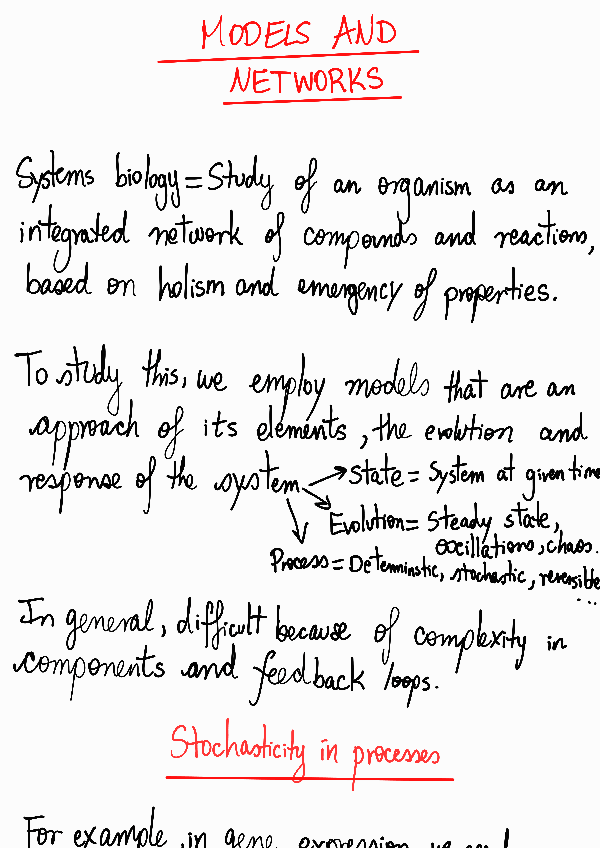 MODELS AND
NETWORKS
Systems biology = Study of an organism as an
integrated network of compounds and reactions,
based on holism and emergency of properties.
To study this, we employ models that are an
approach of its elements, the evolution and
response of the system → State = System at given time
Evolution = Steady state,
oscillations, chaos.
Process = Deterministic, stochastic, reversible
...
In general, difficult because of complexity in
components and feedback loops.
Stochasticity in processes
For example, in gene expression